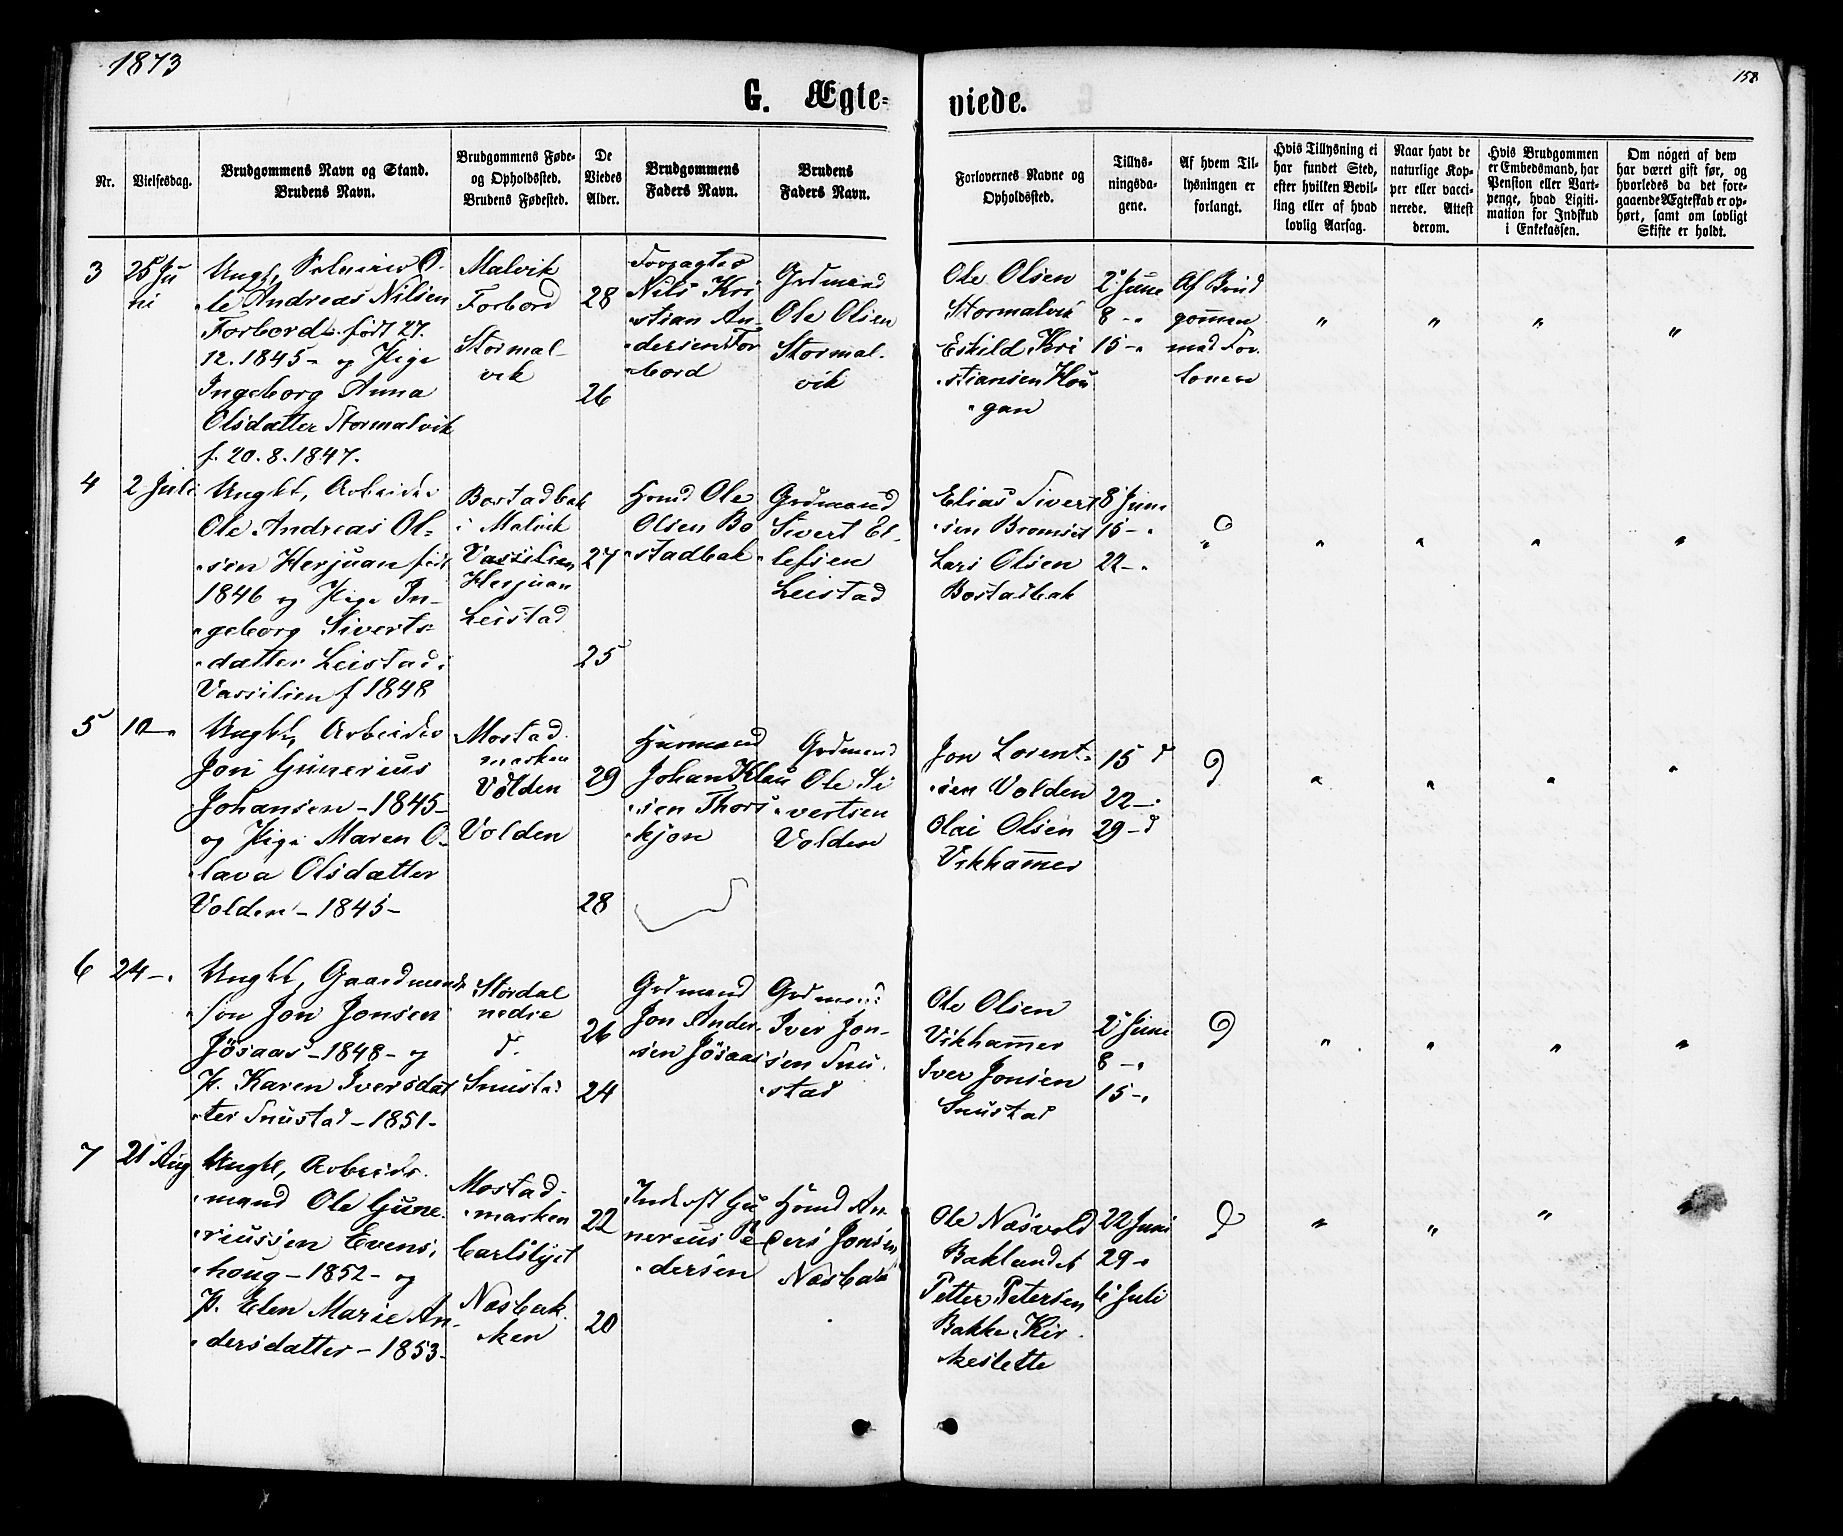 1873
158
G. Ægte=
viede.
Nr.
Vielsesdag.
Brudgommens Navn og Stand.
Brudens Navn.
Brudgommens Føde-
og Opholdssted.
Brudens Fødested.
De
Viedes
Alder.
Brudgommens
Faders Navn.
Brudens
Faders Navn.
Forlovernes Navne og
Opholdssted.
Tillys-
ningsda-
gene.
Af hvem Til-
lysningen er
forlangt.
Hvis Tillysning ei
har fundet Sted,
efter hvilken Bevil-
ling eller af hvad
lovlig Aarsag.
Naar havt de
naturlige Kop-
per eller vacci-
nerede. Attest
derom.
Hvis Brudgommen
er Embedsmand, har
Pension eller Vart-
penge, hvad Ligiti-
mation for Indskud
i Enkekassen.
Om nogen af dem
har været gift før, og
hvorledes da det fore-
gaaende Ægteskab er op-
hørt, samt om lovligt
Skifte er holdt.
3
25 Ju
ni
Ungk, O-
le Andreas Nilsen
Forbord født 27.
12.1845 - og Pige
Ingeborg Anna
Olsdatter Stormalvik
f. 20.8.1847.
Malvik
Forbord
Stormal-
vik
28
26
Nils Kri
stian An-
dersen For
bord
Grdmand
Ole Olsen
Stormal-
vik
Ole Olsen
Stormalvik
Eskild Kri
stiansen Hou
gan
2 June
8 - "
15 - "
Af Brud
gommen
med For
lovere
"
"
"
"
4
2 Juli
Ungkl, Arbeider
Ole Andreas Ol-
sen Herjuan født
1846 og Pige In-
geborg Siverts-
datter Leistad i
Vasselien f 1848
Bostadbak
i Malvik
Vasselien
Herjuan
Leistad
27
25
Hsmd Ole
Olsen Bo
stadbak
Grdmand
Sivert El-
lefsen
Leistad
Elias Sivert
sen Bromset
Lars Olsen
Bostadbak
8 Juni
15 - "
22 - "
"
"
"
"
"
5
10 - "
Ungkl, Arbeider
Jon Gunerius
Johansen - 1845 -
og Pige Maren O-
lava Olsdatter
Volden - 1845 -
Mostad
marken
Volden
Volden
29
28
Husmand
Johan Klau
sen Thors
kjøn
Grdmand
Ole Si
vertsen
Volden
Jon Lorent-
sen Volden
Olai Olsen
Vikhammer
15 d
22 - "
29 - d
"
"
"
"
6
24 - "
Ungkl, Gaardmands
søn Jon Jonsen
Jøsaas - 1848 - og
P. Karen Iversdat
ter Snustad - 1851 -
Størdal
nedre
d.
Snustad
26
24
Grdmand
Jon Ander
sen Jøsaas
Grdmand
Iver Jon-
sen Snu
stad
Ole Olsen
Vikhammer
Iver Jonsen
Snustad
2 June
8 - "
15 - "
"
"
"
"
7
21 Aug
Ungkl, Arbeids
mand Ole Gune
riussen Evens
houg - 1852 - og
P. Elen Marie An-
dersdatter - 1853 -
Mostad-
marken
Carlslyst
Næsbak
ken
22
20
Inderst Gu
nerius Pe
dersen
Hsmd An
ders Jonsen
Næsbak
Ole Næsvold
Baklandet
Petter Petersen
Bakke Kir
keslette
22 Juni
29 - "
6 Juli
"
"
"